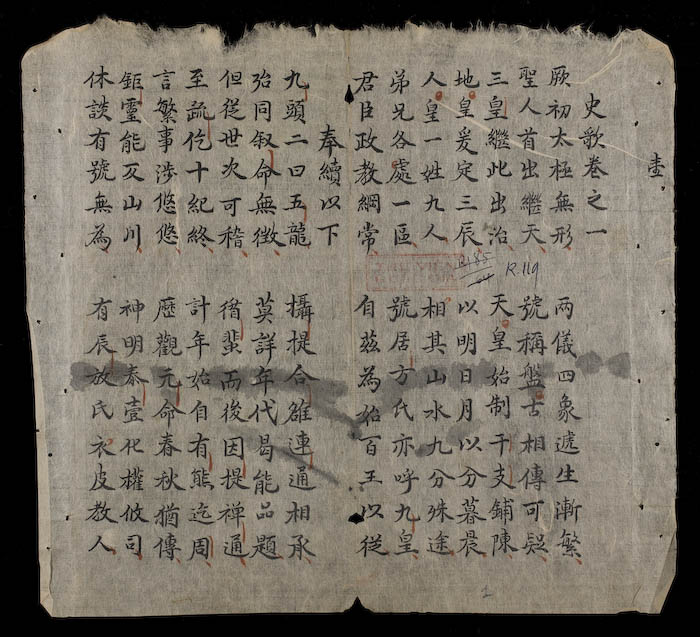 壹
史歌卷之一
厥初太極無形 两儀四象遞生漸繁
聖人首出繼天 號稱盤古相傳可疑
三皇繼此出治 天皇始制干支鋪陳
地皇爰定三辰 以明日月以分暮晨
人皇一姓九人 相其山水九分殊途
弟兄各處一區 號居方氏亦呼九皇
君臣政教綱常 自茲為始百王以從
奉續以下
九頭二曰五龍 攝提合雒連通相承
殆同叙命無徵 莫詳年代曷能品題
但從世次可稽 循蜚而後因提禅通
至疏仡十紀終 計年始自有熊迄周
言繁事涉悠悠 歷觀元命春秋猶傳
鉅靈能反山川 神明泰壹化權攸司
休談有號無為 有辰放氏衣皮教人
R.119